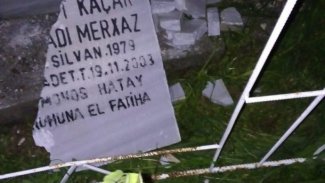 KAÇAR
ADI MERXAZ
SİLVAN 1979
DET.T.19.11.2003
HATAY
RUHUNA EL FATİHA